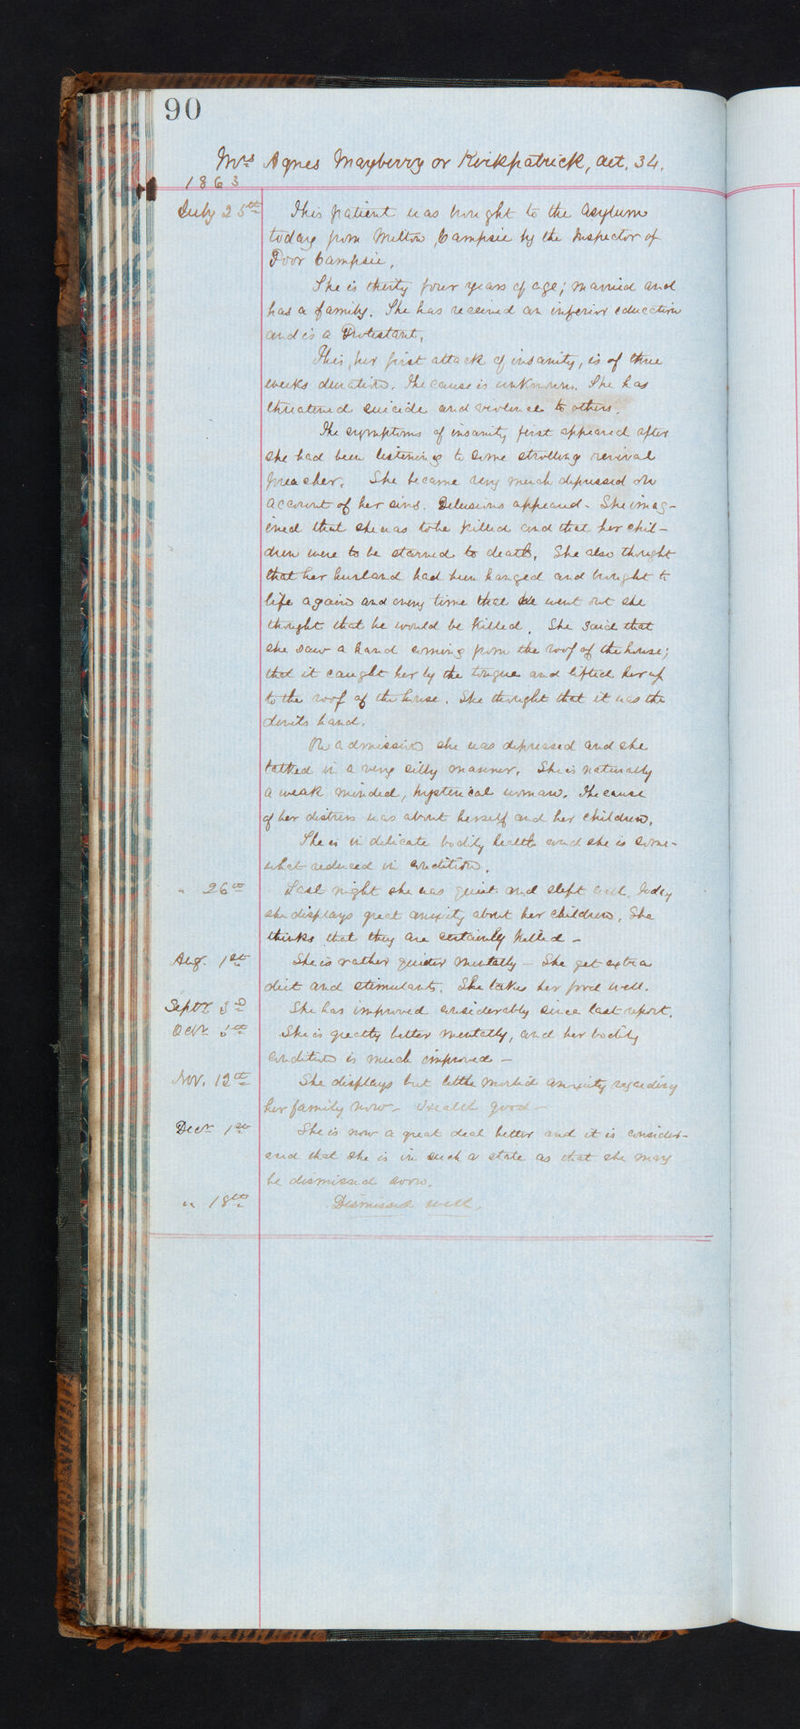 90
Mrs Agnes Mayberry or Kirkpatrick, aet. 34.
1863
July 25th This patient was brought to the Asylum
today from Milton, Campsie by the Inspector of
Poor Campsie.
She is thirty four years of age; married and
has a family. She has received an inferior education
and is a Protestant.
This, her first attack of insanity, is of three
weeks duration. The cause is unknown. She has
threatened suicide and violence to others.
The symptoms of insanity first appeared after
she had been listening to some strolling revival
preacher. She became very much depressed on
account of her sins. Delusions appeared. She imag-
ined that she was to be killed and that her chil-
dren were to be starved to death. She also thought
that her husband had been hanged and brought to
life again and every time that he went out she
thought that he would be killed. She said that
she saw a hand coming from the roof of the house;
that it caught her by the tongue and lifted her up
to the roof of the house. She thought that it was the
devils hand.
On admission she was depressed and she
talked in a very silly manner. She is naturally
a weak minded, hysterical woman. The cause
of her distress was about herself and her children.
She is in delicate bodily health and she is some-
what reduced in condition.
" 26th Last night she was quiet and slept well. Today
she displays great anxiety about her children. She
thinks that they are certainly killed -
Aug. 1st She is rather quieter mentally - She get extra
diet and stimulants. She takes her food well.
Septr 3D She has improved considerably since last report.
Octr 5th She is greatly better mentally, and her bodily
condition is much improved -
Nov. 12th She displays but little morbid anxiety regarding
her family now - Health good -
Decr 1st She is now a great deal better and it is consider-
ered that she is in such a state as that she may
be dismissed soon.
" 18th Dismissed well.